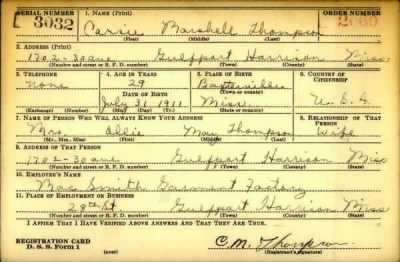 SERIAL NUMBER 1. NAME (Print) ORDER NUMBER
3032 Carsie Marshell Thompson 2660
(First) (Middle) (Last)
2. ADDRESS (Print)
1702-30 ave Gulfport Harrison Miss
(Number and street or R. F. D. number) (Town) (County) (State)
3. TELEPHONE 4. AGE IN YEARS 5. PLACE OF BIRTH 6. COUNTRY OF CITIZENSHIP
None 29 Baxterville
DATE OF BIRTH (Town or county)
July 31, 1911 Miss. U.S.A
(Exchange) (Number) (Mo.) (Day) (Yr.) (State or country)
7. NAME OF PERSON WHO WILL ALWAYS KNOW YOUR ADDRESS 8. RELATIONSHIP OF THAT PERSON
Mrs. Allie May Thompson Wife
(Mr., Mrs., Miss) (First) (Middle) (Last)
9. ADDRESS OF THAT PERSON
1702-30 ave Gulfport Harrison Miss
(Number and street or R. F. D. number) (Town) (County) (State)
10. EMPLOYER'S NAME
Mac Smith Garment Factory
11. PLACE OF EMPLOYMENT OR BUSINESS
28th St. Gulfport Harrison Miss
(Number and street or R. F. D. number) (Town) (County) (State)
I AFFIRM THAT I HAVE VERIFIED ABOVE ANSWERS AND THAT THEY ARE TRUE.
REGISTRATION CARD
D. S. S. Form 1 C.M. Thompson
(Registrant's signature)